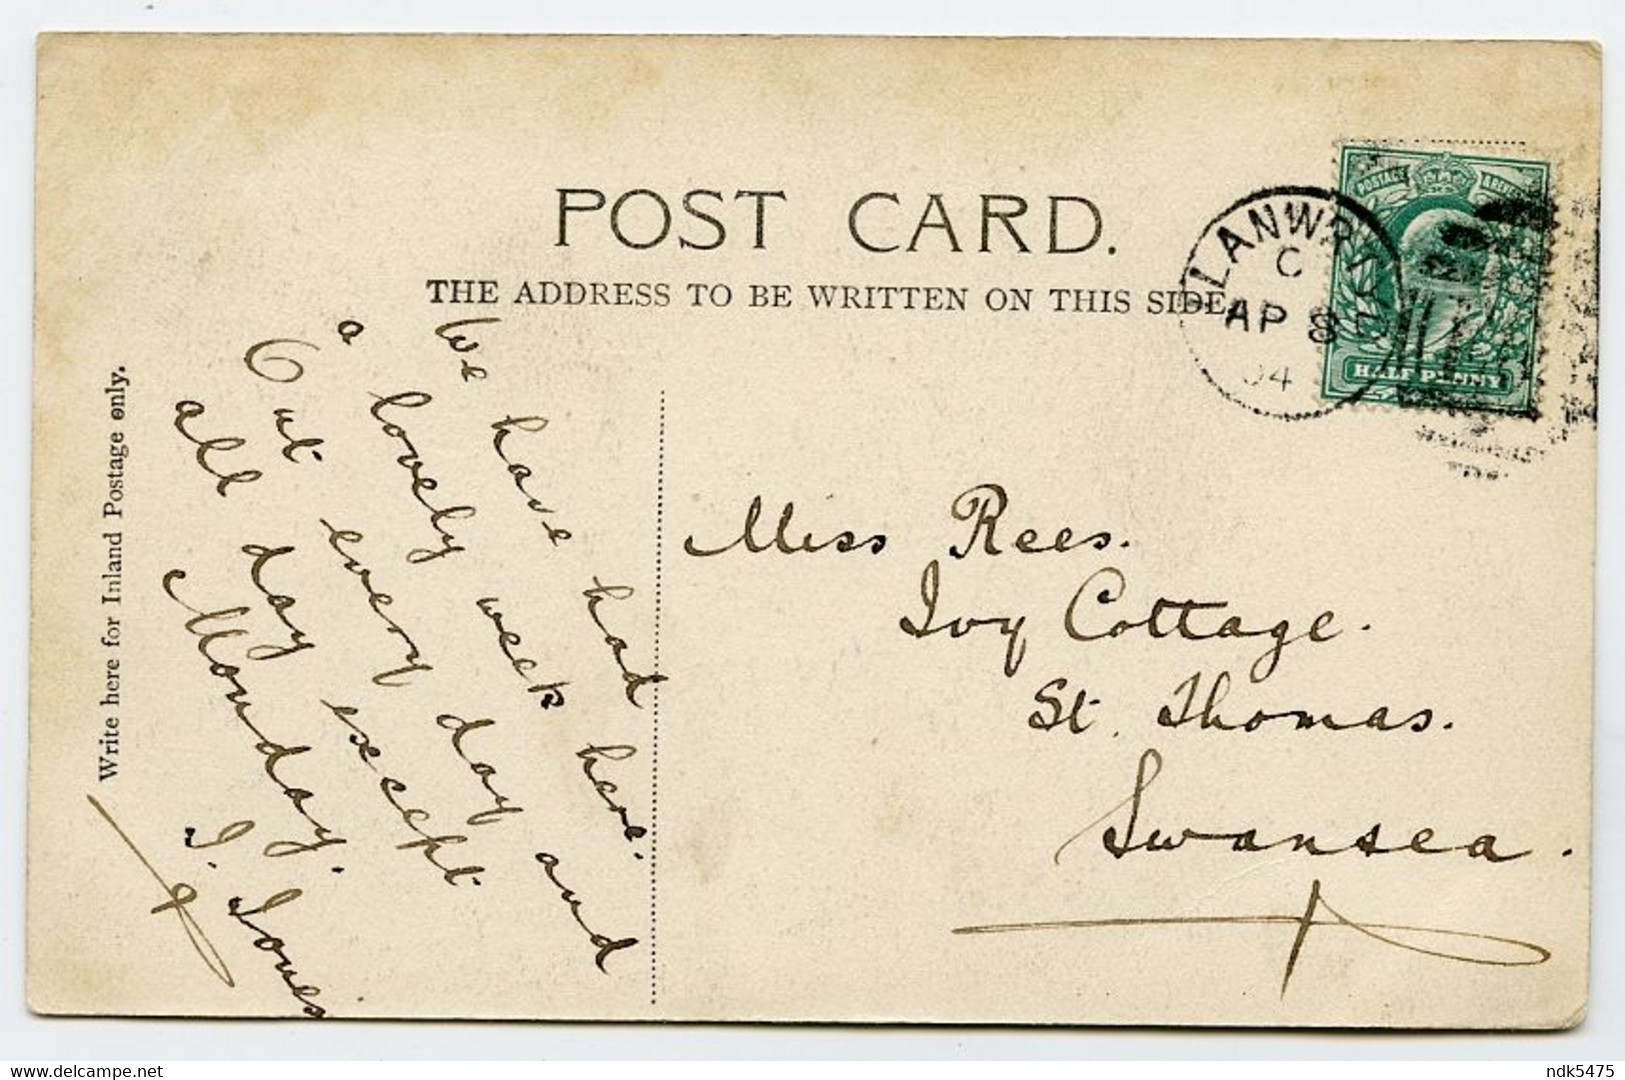 POST CARD.
THE ADDRESS TO BE WRITTEN ON THIS SIDE.
Write here for Inland Postage only.
LLANWRTYD
C
AP 8
04
POSTAGE
HALF PENNY
We have had
a lovely week here.
Out every day and
all day except
Monday.
I. Jones
Miss Rees.
Ivy Cottage.
St. Thomas.
Swansea.
delcampe.net
ndk5475